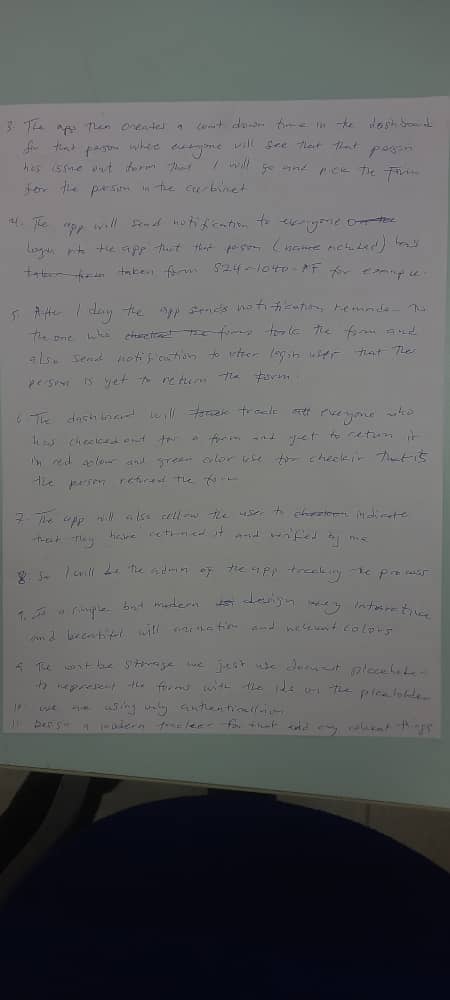 3. The app then creates a count down time in the dashboard
for that person where everyone will see that that person
has issue out form that I will go and pick the Form
for the person in the curbinet
4. The app will send notification to everyone
login into the app that that person (name included) has
taken form taken form S24-1040-AF for example.
5. After 1 day the app sends notification reminder to
the one who checked the forms took the form and
also send notification to other login user that the
person is yet to return the form.
6. The dashboard will track everyone who
has checked out for a form and yet to return it
in red colour and green color use for checkin that is
the person retured the form
7. The app will also allow the user to indicate
that they have returned it and verified by me
8. So I will be the admin of the app tracking the process
9. Is a simple but modern design very interactive
and beautiful will animation and relevant colors
9. The wont be storage we just use document placeholder
to represent the forms with the ids on the placeholder
10. we are using only authentication
11. Design a modern tracker for that add any relevant things